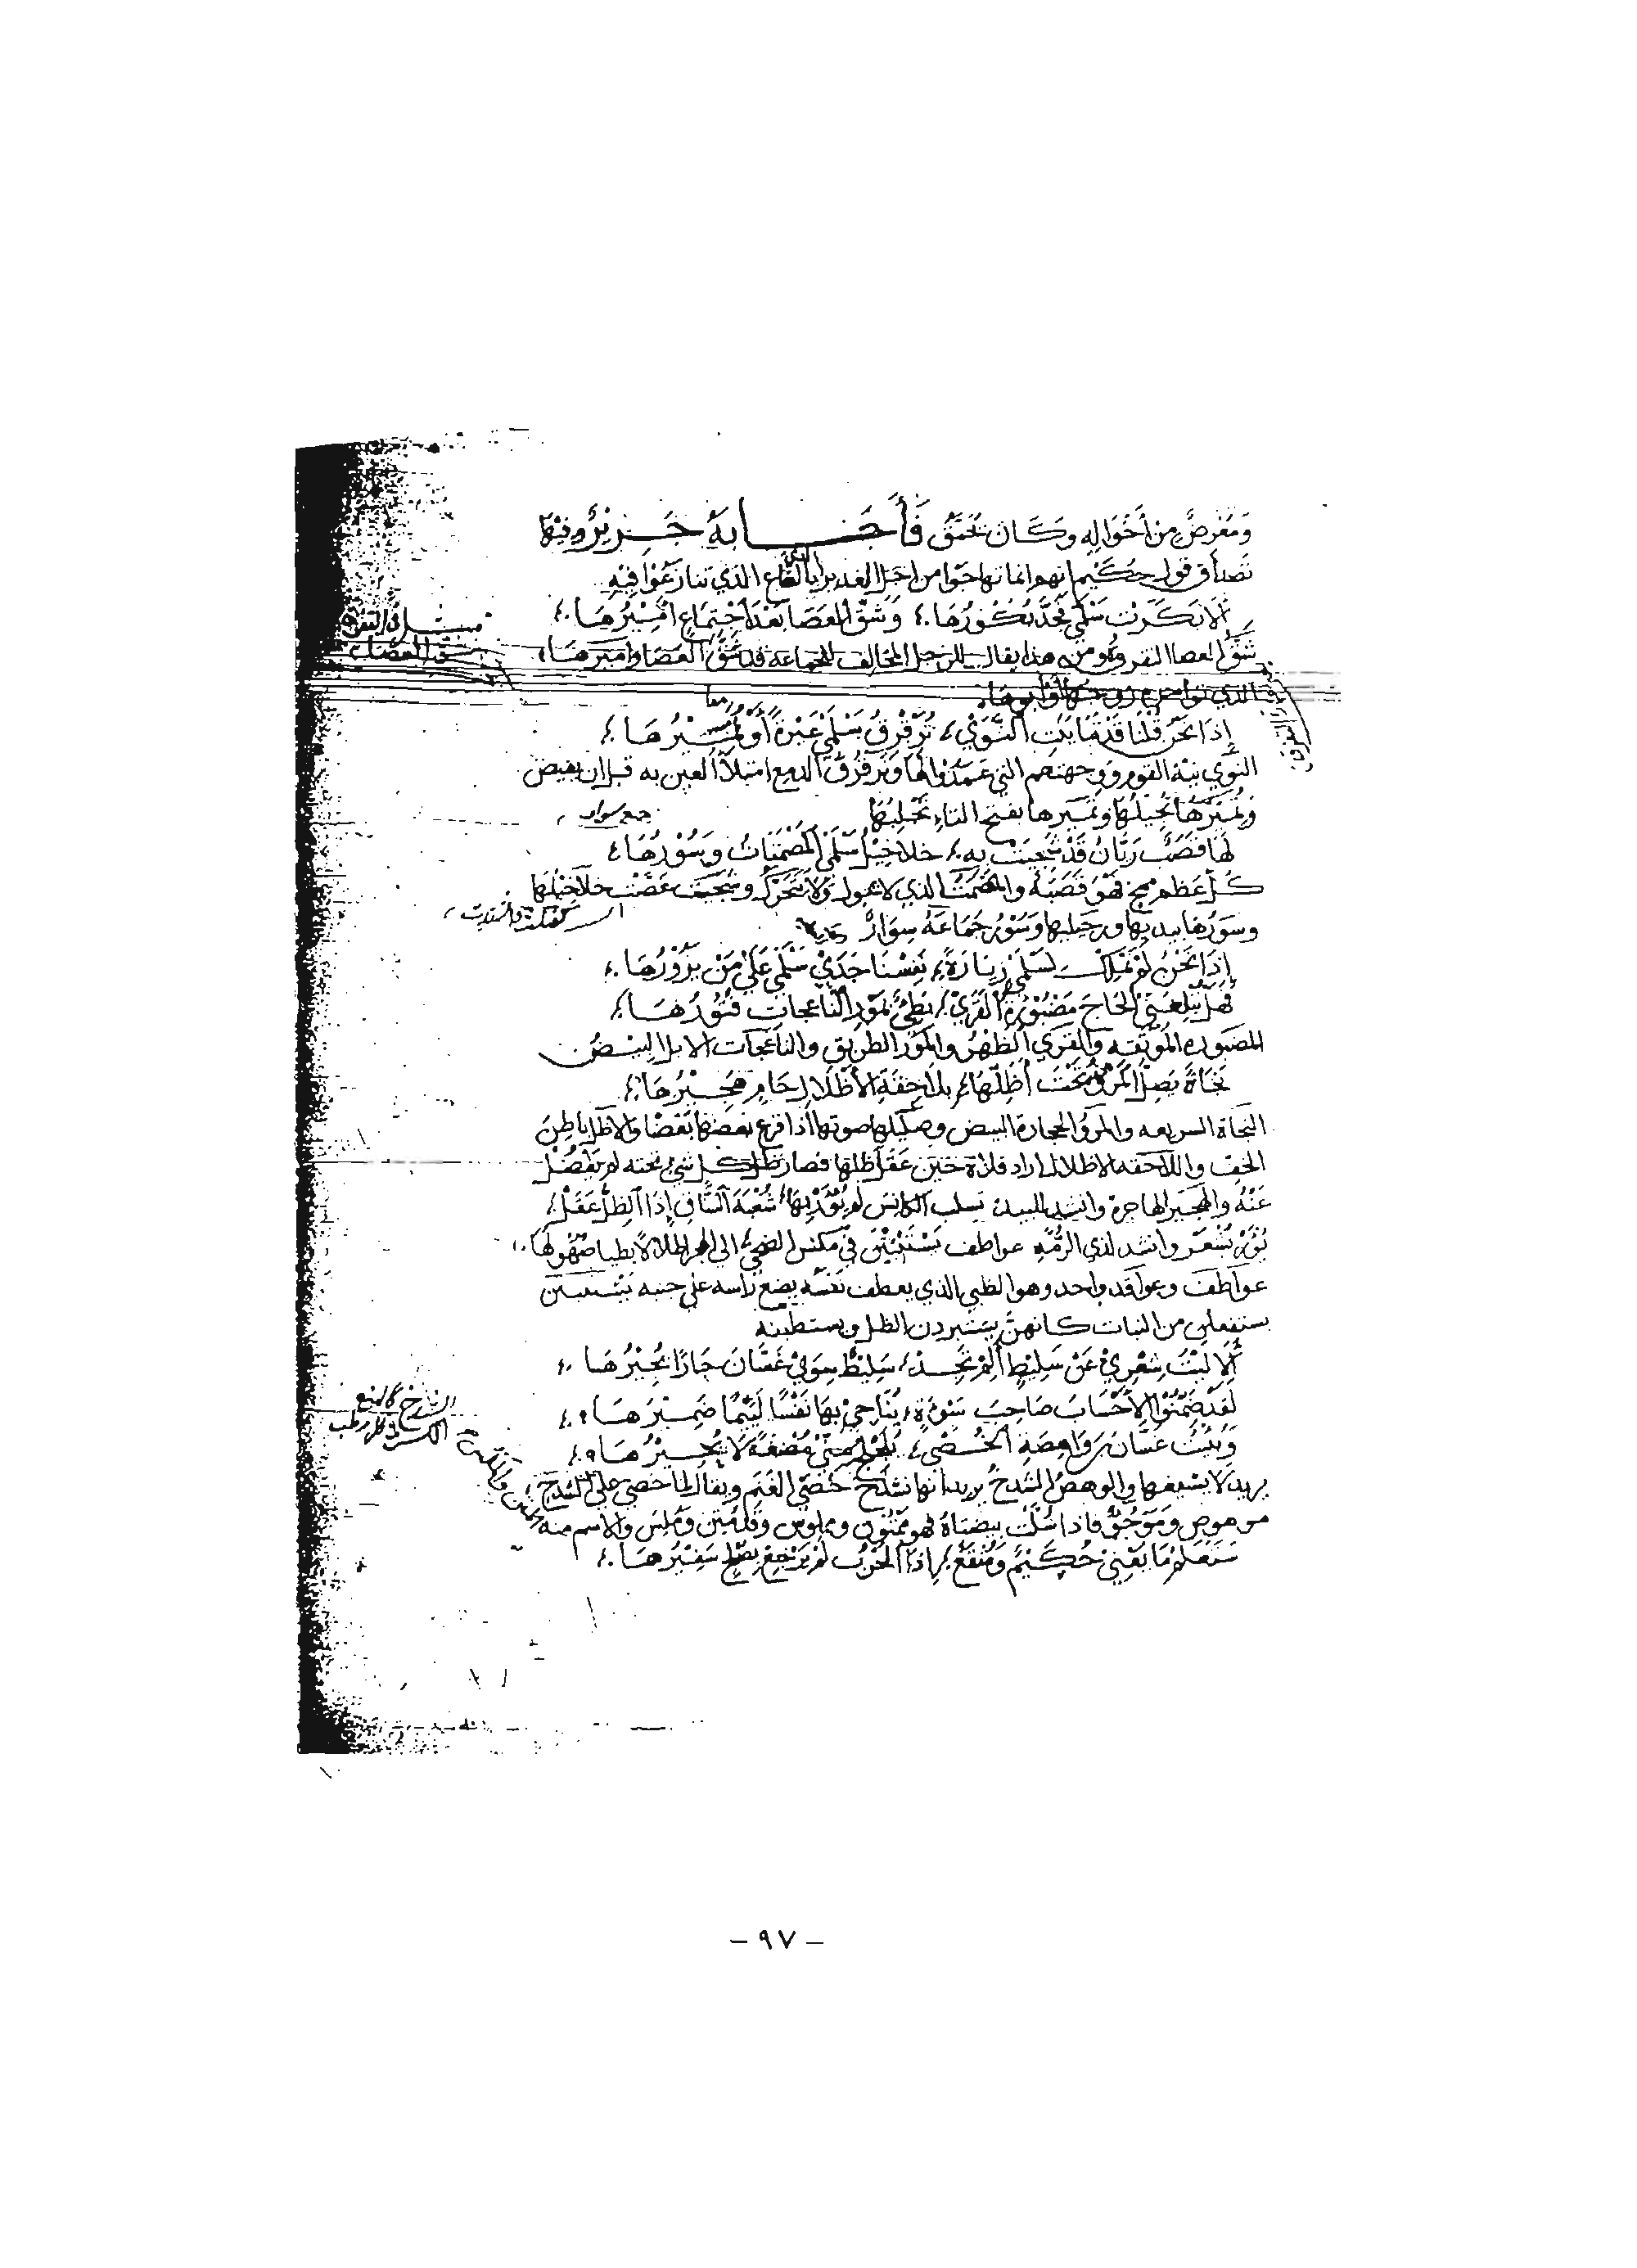 وَمُعْرِضٌ مِنْ أَخْوَالِهِ وَكَانَ يُحَمَّقُ فَأَجَابَهُ جَرِيرٌ وفيها
تصداق قول حكيم انهم انما تهاجوا من اجل الغدير بالقاع الذي تنازعُوا فيهِ
أَلَا بَكَرَتْ سَلْمَى فَجَدَّ بُكُورُهَا وَشَقَّ العَصَا بَعْدَ اجْتِمَاعٍ أَمِيرُهَا
شَقُّ العصا التفرق ومن هذا يقال للرجل المخالف للجماعة قد شَقَّ العَصَا وأميرها
الذي تؤامره زوجها أو أبوها
إِذَا نَحْنُ قُلْنَا قَدْ تَبَايَنَتِ النَّوَى تُرَقْرِقُ سَلْمَى عَبْرَةً أَوْ تُمِيرُهَا
معا
النوى نية القوم ووجهتهم التي عمدوا لها وترقرق الدمع امتلاء العين به قبل ان يفيض
وتُميرها تُجيلها وتَميرها بفتح التاء تجلبها
جمع سوار
لَهَا قَصَبٌ رَيَّانُ قَدْ شَجِيَتْ به خلاخيل سَلْمَى المُصْمَتَاتُ وَسُورُهَا
كل عظم ممخ فهو قصبة والمصمت الذي لا يجول ولا يتحرك وشجيت غصت خلاخيلها
وسورها بيديها ورجليها وسُور جماعة سِوَار
إِذَا نَحْنُ لَمْ نَمْلِكْ لِسَلْمَى زِيَارَةً نَفِسْنَا جَدَى سَلْمَى عَلَى مَنْ يَزُورُهَا
فهل تبلغني الحاج مَضْبُورَةُ القَرَى بَطِيءٌ بِمَوْرِ النَّاعِجَاتِ فُتُورُهَا
المضبورة المُوثقة والقَرَى الظهْرُ والمَوْر الطريق والناعجات الابل البيض
نَجَاةٌ يَصِلُّ المَرْوُ تَحْتَ أَظَلِّهَا بلاحِقَةِ الأَظْلَالِ حَامٍ هَجِيرُهَا
النجاة السريعه والمرو الحجارة البيض وصليلها صوتها اذا قرع بعضها بعضا والاظل باطن
الخف واللاحقه الاظلال اراد فلاة حين عَقَل ظلها فصار ظل كل شيء تحته لم يفضل
عَنْهُ والهجير الهاجرة وانشد للبيد تسلب الكانس لم يُؤْرَ بِهَا شُعْبَةَ السَّاقِ إِذَا الظِّلُّ عَقَلْ
يُؤْرَ يُشْعَر وانشد لذي الرُّمَّةِ عواطف يَسْتَثْبِتْنَ في مكنس الضحى الى الهجر اظلالا بطيا ضُهُولُهَا
عواطف وعواقد واحد وهو الظبي الذي يعطف نفسه يضع راسه على جنبه يستثبتن
يستفعلن من الثبات كانهن يستبردن الظل ويستطبنه
أَلَا لَيْتَ شِعْرِي عَنْ سَلِيطٍ أَلَمْ تَجِدْ سَلِيطٌ سِوَى غَسَّانَ جَارًا يُجِيرُهَا
لَقَدْ ضَمَّنُوا الأَحْسَابَ صَاحِبَ سَوْءَةٍ يُنَاجِي بِهَا نَفْسًا لَئِيمًا ضَمِيرُهَا
وَنُبِّئْتُ غَسَّانَ بْنَ وَاهِصَةِ الخُصَى يُلَجْلِجُ مِنِّي مُضْغَةً لَا يُحِيرُهَا
يريد لا يسيغها والوهص الشدخ يريد انها تشدخ خصى الغنم ويقال لما خصي على الشدخ
موهوص وموجوء فاذا سُلَّت بيضتاه فهو ممتون ومملوس وقد مُتن ومُلس والاسم منه
سَتَعْلَمُ مَا يُغْنِي حُكَيْمٌ وَمُنْقَعٌ إِذَا الحَرْبُ لَمْ يَرْجِعْ بِصُلْحٍ سَفِيرُهَا
– ٩٧ –